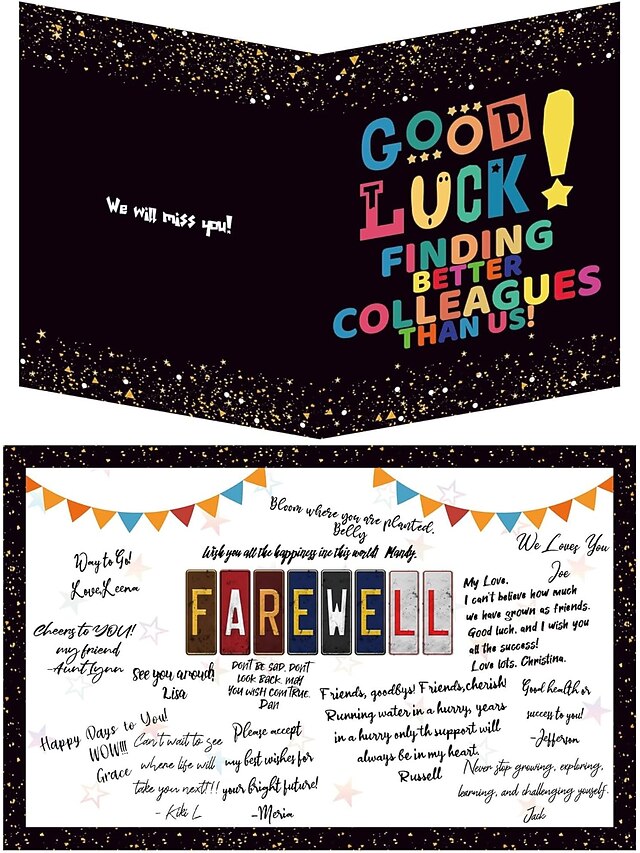 We will miss you!
GOOD
LUCK!
FINDING
BETTER
COLLEAGUES
THAN US!
Bloom where you are planted.
Belly
Wish you all the happiness inc this world! Mandy.
We Loves You
Joe
Way to Go!
Love,Leena
FAREWELL
My Love.
I can't believe how much
we have grown as friends.
Good luck. and I wish you
all the success!
Love lots. Christina.
Cheers to YOU!
my friend
Aunt Lynn
See you aroudj
Lisa
DON'T BE SAD. DON'T
LOOK BACK. MAY
YOU WISH COM TRUE.
Dan
Friends, goodbys! Friends,cherish!
Running water in a hurry, years
in a hurry only th support will
always be in my heart.
Russell
Good health or
success to you!
-Jefferson
Happy Days to You!
WOW!!!
Grace
Can't wait to see
where life will
take you next!!!
- Kiki L
Please accept
my best wishes for
your bright future!
-Meria
Never stop growing, exploring,
learning, and challenging youself.
Jack